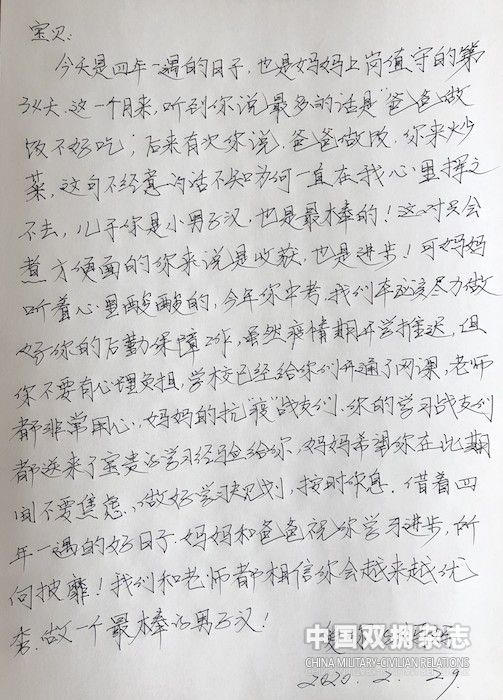 宝贝:
今天是四年一遇的日子,也是妈妈上岗值守的第
34天.这一个月来,听到你说最多的话是“爸爸做
饭不好吃;后来有次你说,爸爸做饭,你来炒
菜,这句不经意的话不知为何一直在我心里挥之
不去,儿子你是小男子汉,也是最棒的!这对只会
煮方便面的你来说是收获,也是进步!可妈妈
听着心里酸酸的,今年你中考,我们本应该尽力做
好你的后勤保障工作,虽然疫情期开学推迟,但
你不要有心理负担,学校已经给你们开通了网课,老师
都非常用心,妈妈的抗“疫”战友们、你的学习战友们
都送来了宝贵的学习经验给你,妈妈希望你在此期
间不要焦虑,做好学习规划,按时作息.借着四
年一遇的好日子.妈妈和爸爸祝你学习进步,所
向披靡!我们和老师都相信你会越来越优
秀.做一个最棒的男子汉!
爱你的妈妈
2020.2.29
中国双拥杂志
CHINA MILITARY-CIVILIAN RELATIONS